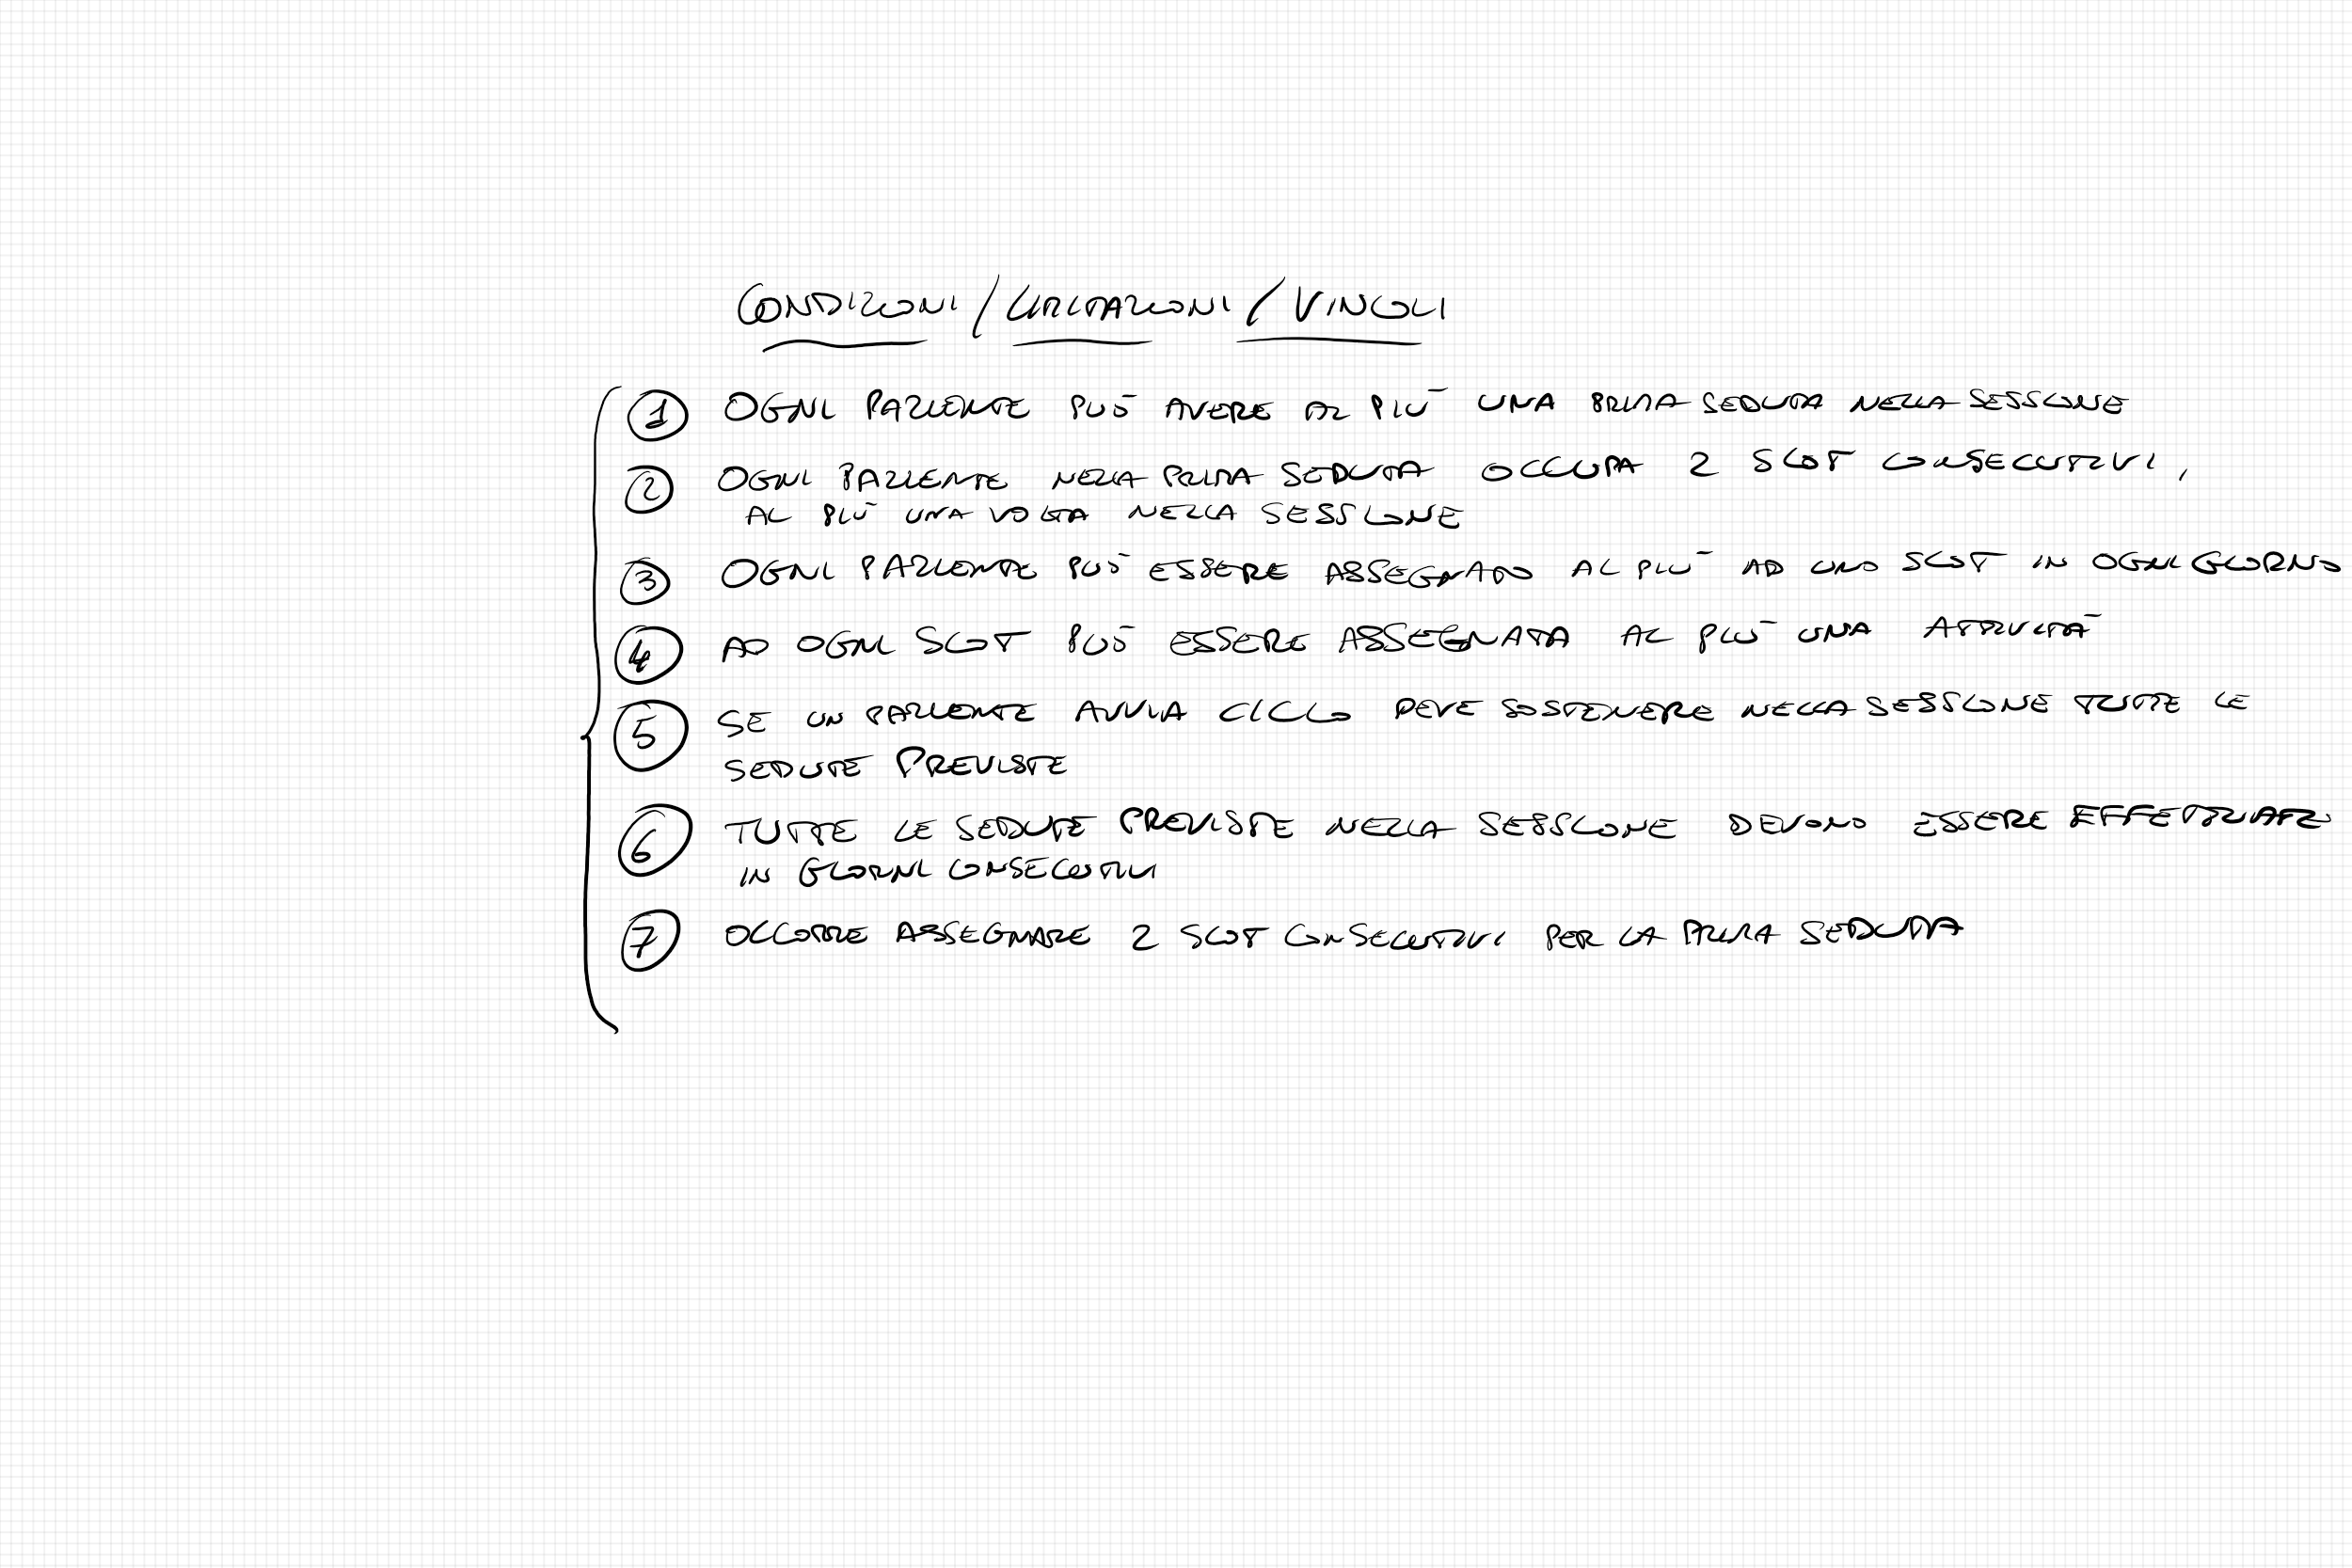 CONDIZIONI / LIMITAZIONI / VINCOLI
1 OGNI PAZIENTE PUÒ AVERE AL PIÙ UNA PRIMA SEDUTA NELLA SESSIONE
2 OGNI PAZIENTE NELLA PRIMA SEDUTA OCCUPA 2 SLOT CONSECUTIVI,
AL PIÙ UNA VOLTA NELLA SESSIONE
3 OGNI PAZIENTE PUÒ ESSERE ASSEGNATO AL PIÙ AD UNO SLOT IN OGNI GIORNO
4 AD OGNI SLOT PUÒ ESSERE ASSEGNATA AL PIÙ UNA ATTIVITÀ
5 SE UN PAZIENTE AVVIA CICLO DEVE SOSTENERE NELLA SESSIONE TUTTE LE
SEDUTE PREVISTE
6 TUTTE LE SEDUTE PREVISTE NELLA SESSIONE DEVONO ESSERE EFFETTUATE
IN GIORNI CONSECUTIVI
7 OCCORRE ASSEGNARE 2 SLOT CONSECUTIVI PER LA PRIMA SEDUTA